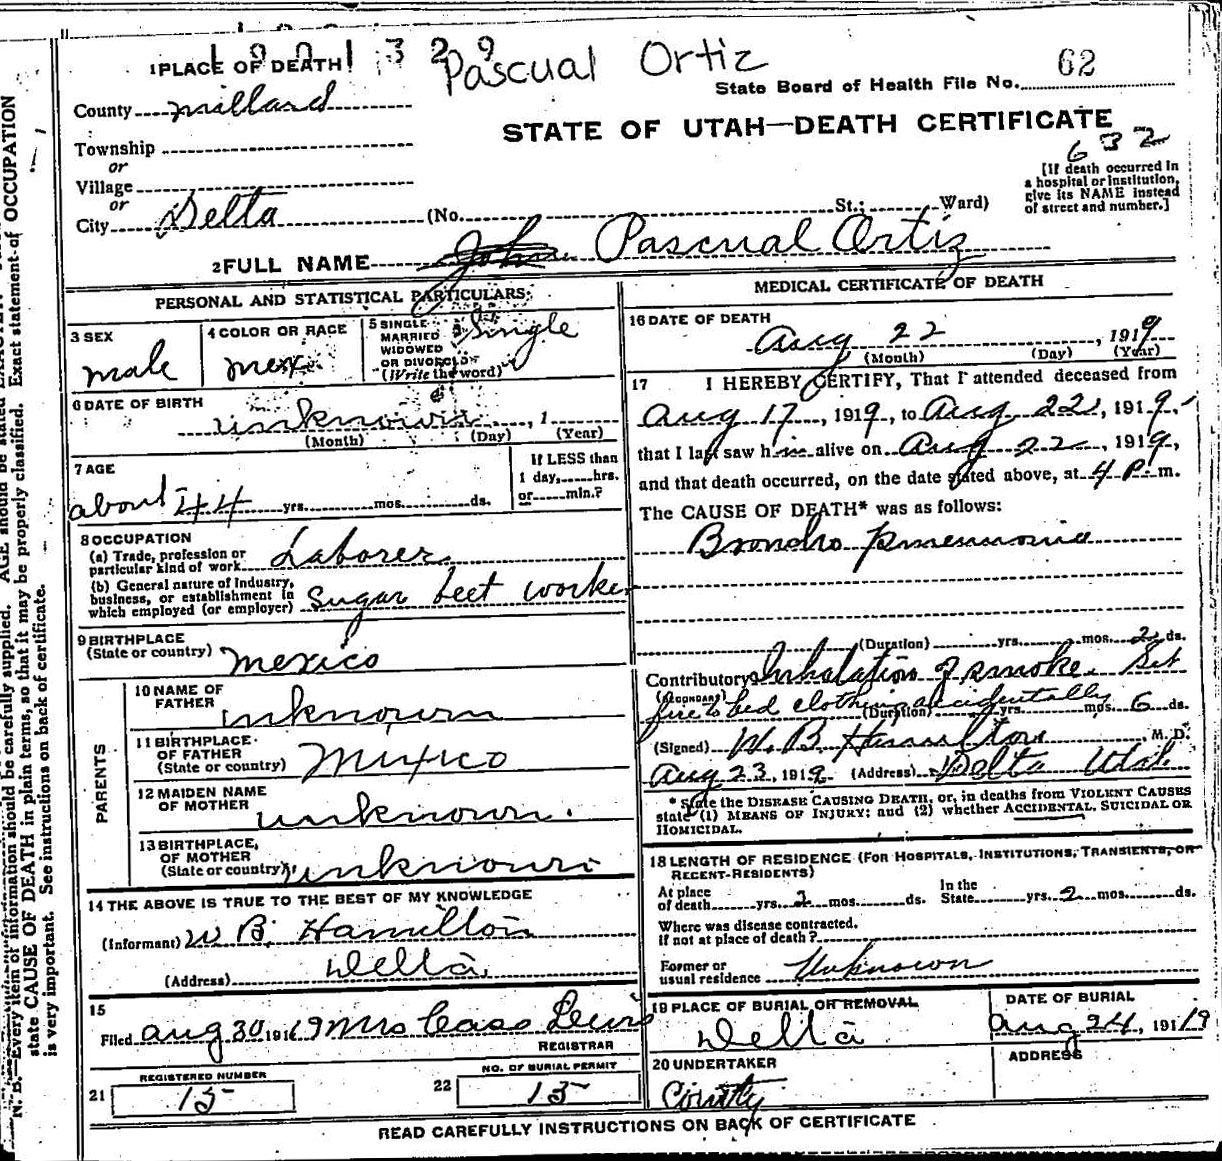 1901329 Pascual Ortiz
1 PLACE OF DEATH
State Board of Health File No. 62
County Millard
STATE OF UTAH—DEATH CERTIFICATE
632
Township
or
Village
or
City Delta (No. St.; Ward)
[If death occurred in
a hospital or institution,
give its NAME instead
of street and number.]
2 FULL NAME John Pascual Ortiz
PERSONAL AND STATISTICAL PARTICULARS
3 SEX
male
4 COLOR OR RACE
mex.
5 SINGLE
MARRIED
WIDOWED
OR DIVORCED
(Write the word)
Single
6 DATE OF BIRTH
unknown, 1
(Month) (Day) (Year)
7 AGE
about 44 yrs. mos. ds.
If LESS than
1 day, hrs.
or min.?
8 OCCUPATION
(a) Trade, profession or
particular kind of work Laborer
(b) General nature of Industry,
business, or establishment in
which employed (or employer) Sugar beet worker
9 BIRTHPLACE
(State or country) Mexico
PARENTS
10 NAME OF
FATHER unknown
11 BIRTHPLACE
OF FATHER
(State or country) Mexico
12 MAIDEN NAME
OF MOTHER unknown.
13 BIRTHPLACE,
OF MOTHER
(State or country) unknown
14 THE ABOVE IS TRUE TO THE BEST OF MY KNOWLEDGE
(Informant) W B. Hamilton
(Address) Delta.
15
Filed Aug 30 1919 Mrs Cass Lewis
REGISTRAR
21 REGISTERED NUMBER
15
22 NO. OF BURIAL PERMIT
15
MEDICAL CERTIFICATE OF DEATH
16 DATE OF DEATH
Aug 22, 1919
(Month) (Day) (Year)
17 I HEREBY CERTIFY, That I attended deceased from
Aug 17, 1919, to Aug 22, 1919,
that I last saw him alive on Aug 22, 1919,
and that death occurred, on the date stated above, at 4 P. m.
The CAUSE OF DEATH* was as follows:
Broncho pneumonia
(Duration) yrs. mos. 2 ds.
Contributory Inhalation of smoke. Set
(SECONDARY) fire to bed clothing accidentally
(Duration) yrs. mos. 6 ds.
(Signed) W. B. Hamilton, M. D.
Aug 23, 1919 (Address) Delta Utah
* State the DISEASE CAUSING DEATH, or, in deaths from VIOLENT CAUSES
state (1) MEANS OF INJURY; and (2) whether ACCIDENTAL, SUICIDAL OR
HOMICIDAL.
18 LENGTH OF RESIDENCE (FOR HOSPITALS, INSTITUTIONS, TRANSIENTS, OR
RECENT RESIDENTS)
At place
of death yrs. 2 mos. ds.
In the
State yrs. 2 mos. ds.
Where was disease contracted.
If not at place of death?
Former or
usual residence Unknown
19 PLACE OF BURIAL OR REMOVAL
Delta
DATE OF BURIAL
Aug 24, 191 19
20 UNDERTAKER
County
ADDRESS
READ CAREFULLY INSTRUCTIONS ON BACK OF CERTIFICATE
N. B.—Every item of information should be carefully supplied. AGE should be stated
state CAUSE OF DEATH in plain terms, so that it may be properly classified. Exact statement of OCCUPATION
is very important. See instructions on back of certificate.